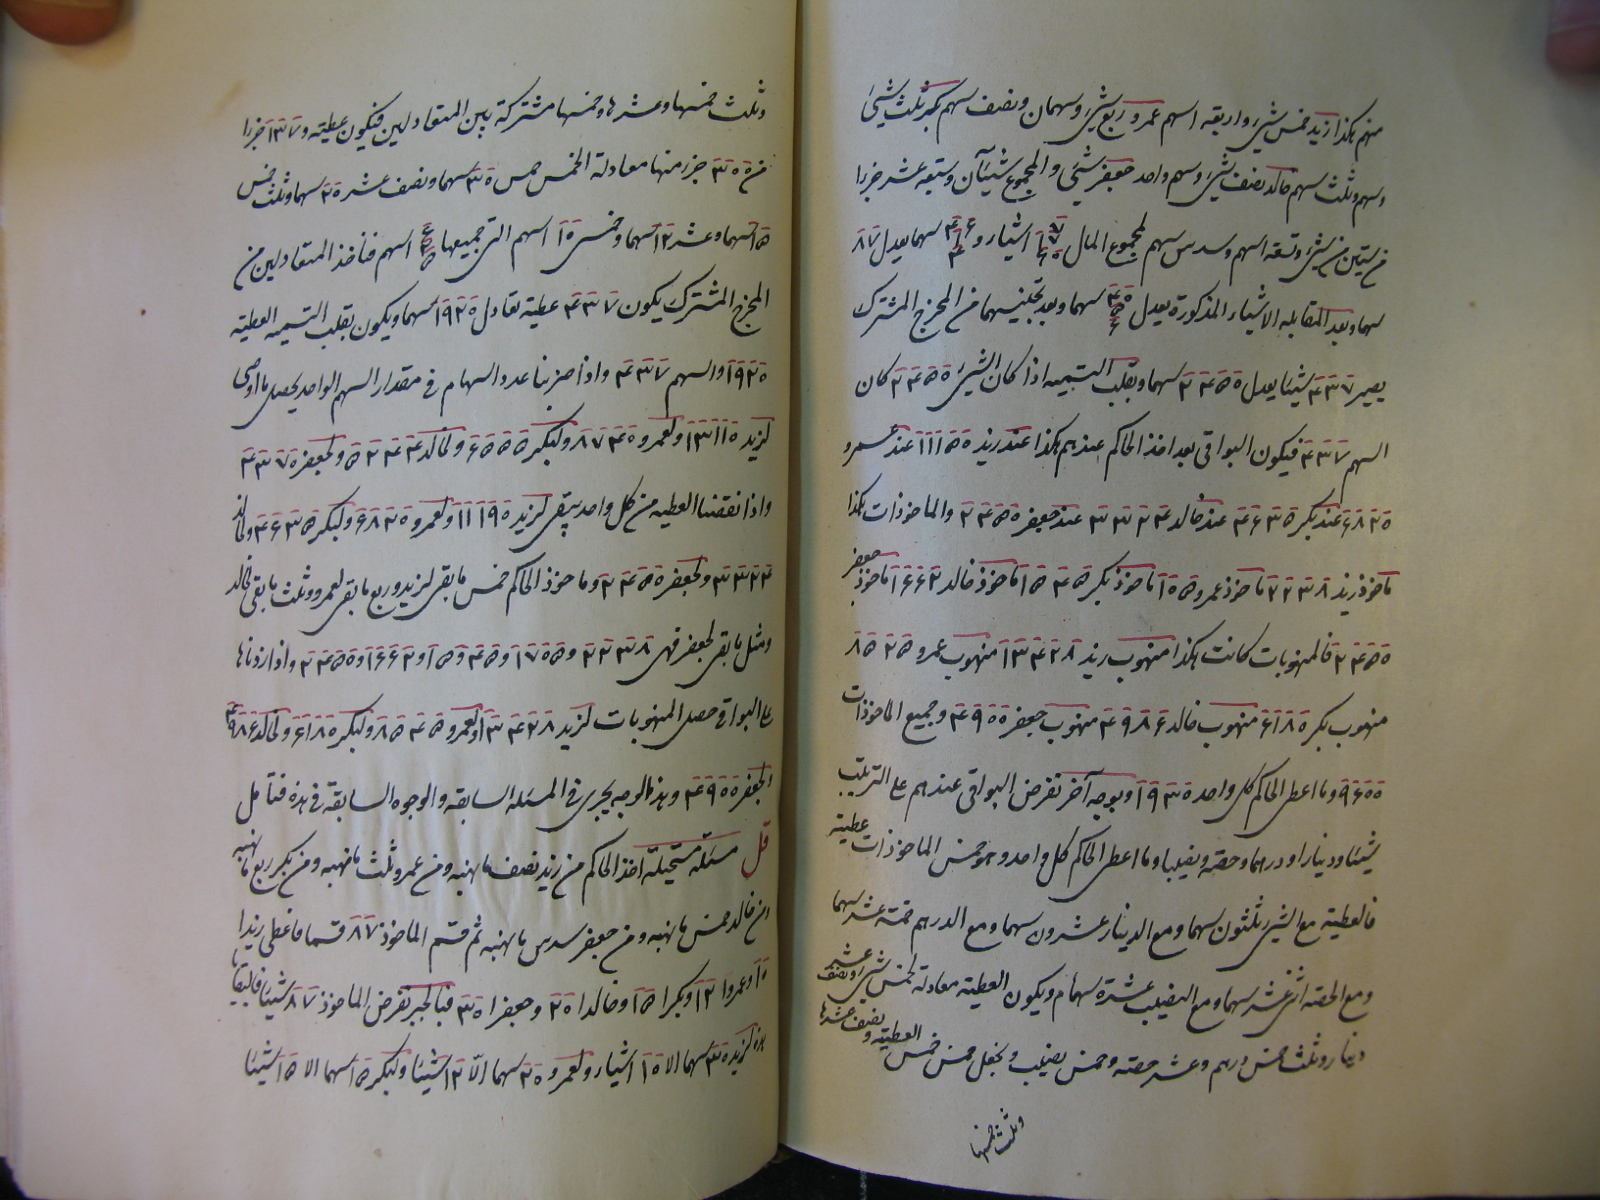 منهم هكذا زيد خمس شئ واربعة اسهم عمرو ربع شئ وسهمان ونصف سهم بكر ثلث شئ
وسهم وثلث سهم خالد نصف شئ وسهم واحد جعفر شئ والمجموع شيئان وسبعة عشر جزءا
من ستين من شئ وتسعة اسهم وسدس سهم لمجموع المال اشياء و سهما يعدل ٨٧
سهما وبعد المقابلة الاشياء المذكورة يعدل سهما وبعد تجنيسهما من المخرج المشترك
يصير ٤٣٧ شيئا يعدل ٢٤٥٥٠ سهما وبقلب التسمية اذا كان الشئ ٢٤٥٥٠ كان
السهم ٤٣٧ فيكون البواقى بعد اخذ الحاكم عندهم هكذا عند زيد ١١١٥٥ عند عمرو
٦٨٢٥ عند بكر ٤٦٣٥ عند خالد ٣٣٢٤ عند جعفر ٢٤٥٥٠ والماخوذات هكذا
ماخوذ زيد ٢٢٣٨ ماخوذ عمرو ماخوذ بكر ١٥٤٥ ماخوذ خالد ١٦٦٢ ماخوذ جعفر
٢٤٥٥٠ فالمنهوبات كانت هكذا منهوب زيد ١٣٤٢٨ منهوب عمرو
منهوب بكر ٦١٨٥ منهوب خالد ٤٩٨٦ منهوب جعفر ٤٩٥٥ وجميع الماخوذات
٩٦٥٥ وما اعطى الحاكم كل واحد ١٩٣٥ وبوجه آخر نفرض البواقى عندهم على الترتيب
شيئا ودينارا ودرهما وحصة ونصيبا وما اعطى الحاكم كل واحد وهو خمس الماخوذات عطية
فالعطية مع الشئ ثلثون سهما ومع الدينار عشرون سهما ومع الدرهم خمسة عشر سهما
ومع الحصة اثنى عشر سهما ومع النصيب عشرة سهام ويكون العطية معادلة لخمس شئ ونصف عشر
دينار وثلث خمس درهم وعشر حصة وخمس نصيب ونجعل خمس خمس العطية ونصف عشرها
وثلث خمسها
وثلث خمسها وعشرها وخمسها مشتركة بين المتعادلين فيكون عطية و ١٣٧ جزءا
من ٣٥٥ جزء منها معادلة الخمس خمس ٣٥ سهما ونصف عشر ٢٥ سهما وثلث خمس
١٥ سهما وعشر ١٢ سهما وخمس ١٥ اسهم التى جميعها اسهم فناخذ المتعادلين من
المخرج المشترك يكون ٤٣٧ عطية تعادل ١٩٢٥ سهما ويكون بقلب التسمية العطية
١٩٢٥ والسهم ٤٣٧ واذا ضربنا عدد السهام فى مقدار السهم الواحد يحصل ما اوصى
لزيد ١٣١١٥ ولعمرو ٨٧٤٥ ولبكر ٦٥٥٥ ولخالد ٥٢٤٤ ولجعفر ٤٣٧٥
واذا نقصنا العطية من كل واحد يبقى لزيد ١١١٩٥ ولعمرو ٦٨٢٥ ولبكر ٤٦٣٥ ولخالد
٣٣٢٤ ولجعفر ٢٤٥٥ وماخوذ الحاكم خمس ما بقى لزيد وربع ما بقى لعمرو وثلث ما بقى لخالد
ومثل ما بقى لجعفر فهى ٢٢٣٨ و ١٧٥٥ و ١٥٤٥ و ١٦٦٢ و ٢٤٥٥ واذا زدناها
على البواقى حصل المنهوبات لزيد ١٣٤٢٨ ولعمرو ولبكر ٦١٨٥ ولخالد ٤٩٨٦
لجعفر ٤٩٥٥ وهذا الوجه يجرى فى المسئلة السابقة والوجوه السابقة فى هذه فتامل
قل مسئلة مستحيلة اخذ الحاكم من زيد نصف ما نهبه ومن عمرو ثلث ما نهبه ومن بكر ربع ما نهبه
ومن خالد خمس ما نهبه ومن جعفر سدس ما نهبه ثم قسم الماخوذ ٨٧ قسما فاعطى زيدا
١٥ وعمروا ١٢ وبكرا ١٥ وخالدا ٢٥ وجعفرا ٣٥ فبالجبر نفرض الماخوذ ٨٧ شيئا فالبقايا
هذه لزيد ٣٥ سهما الا ١٥ اشياء ولعمرو ٢٥ سهما الا ١٢ شيئا ولبكر ١٥ سهما الا ١٥ شيئا